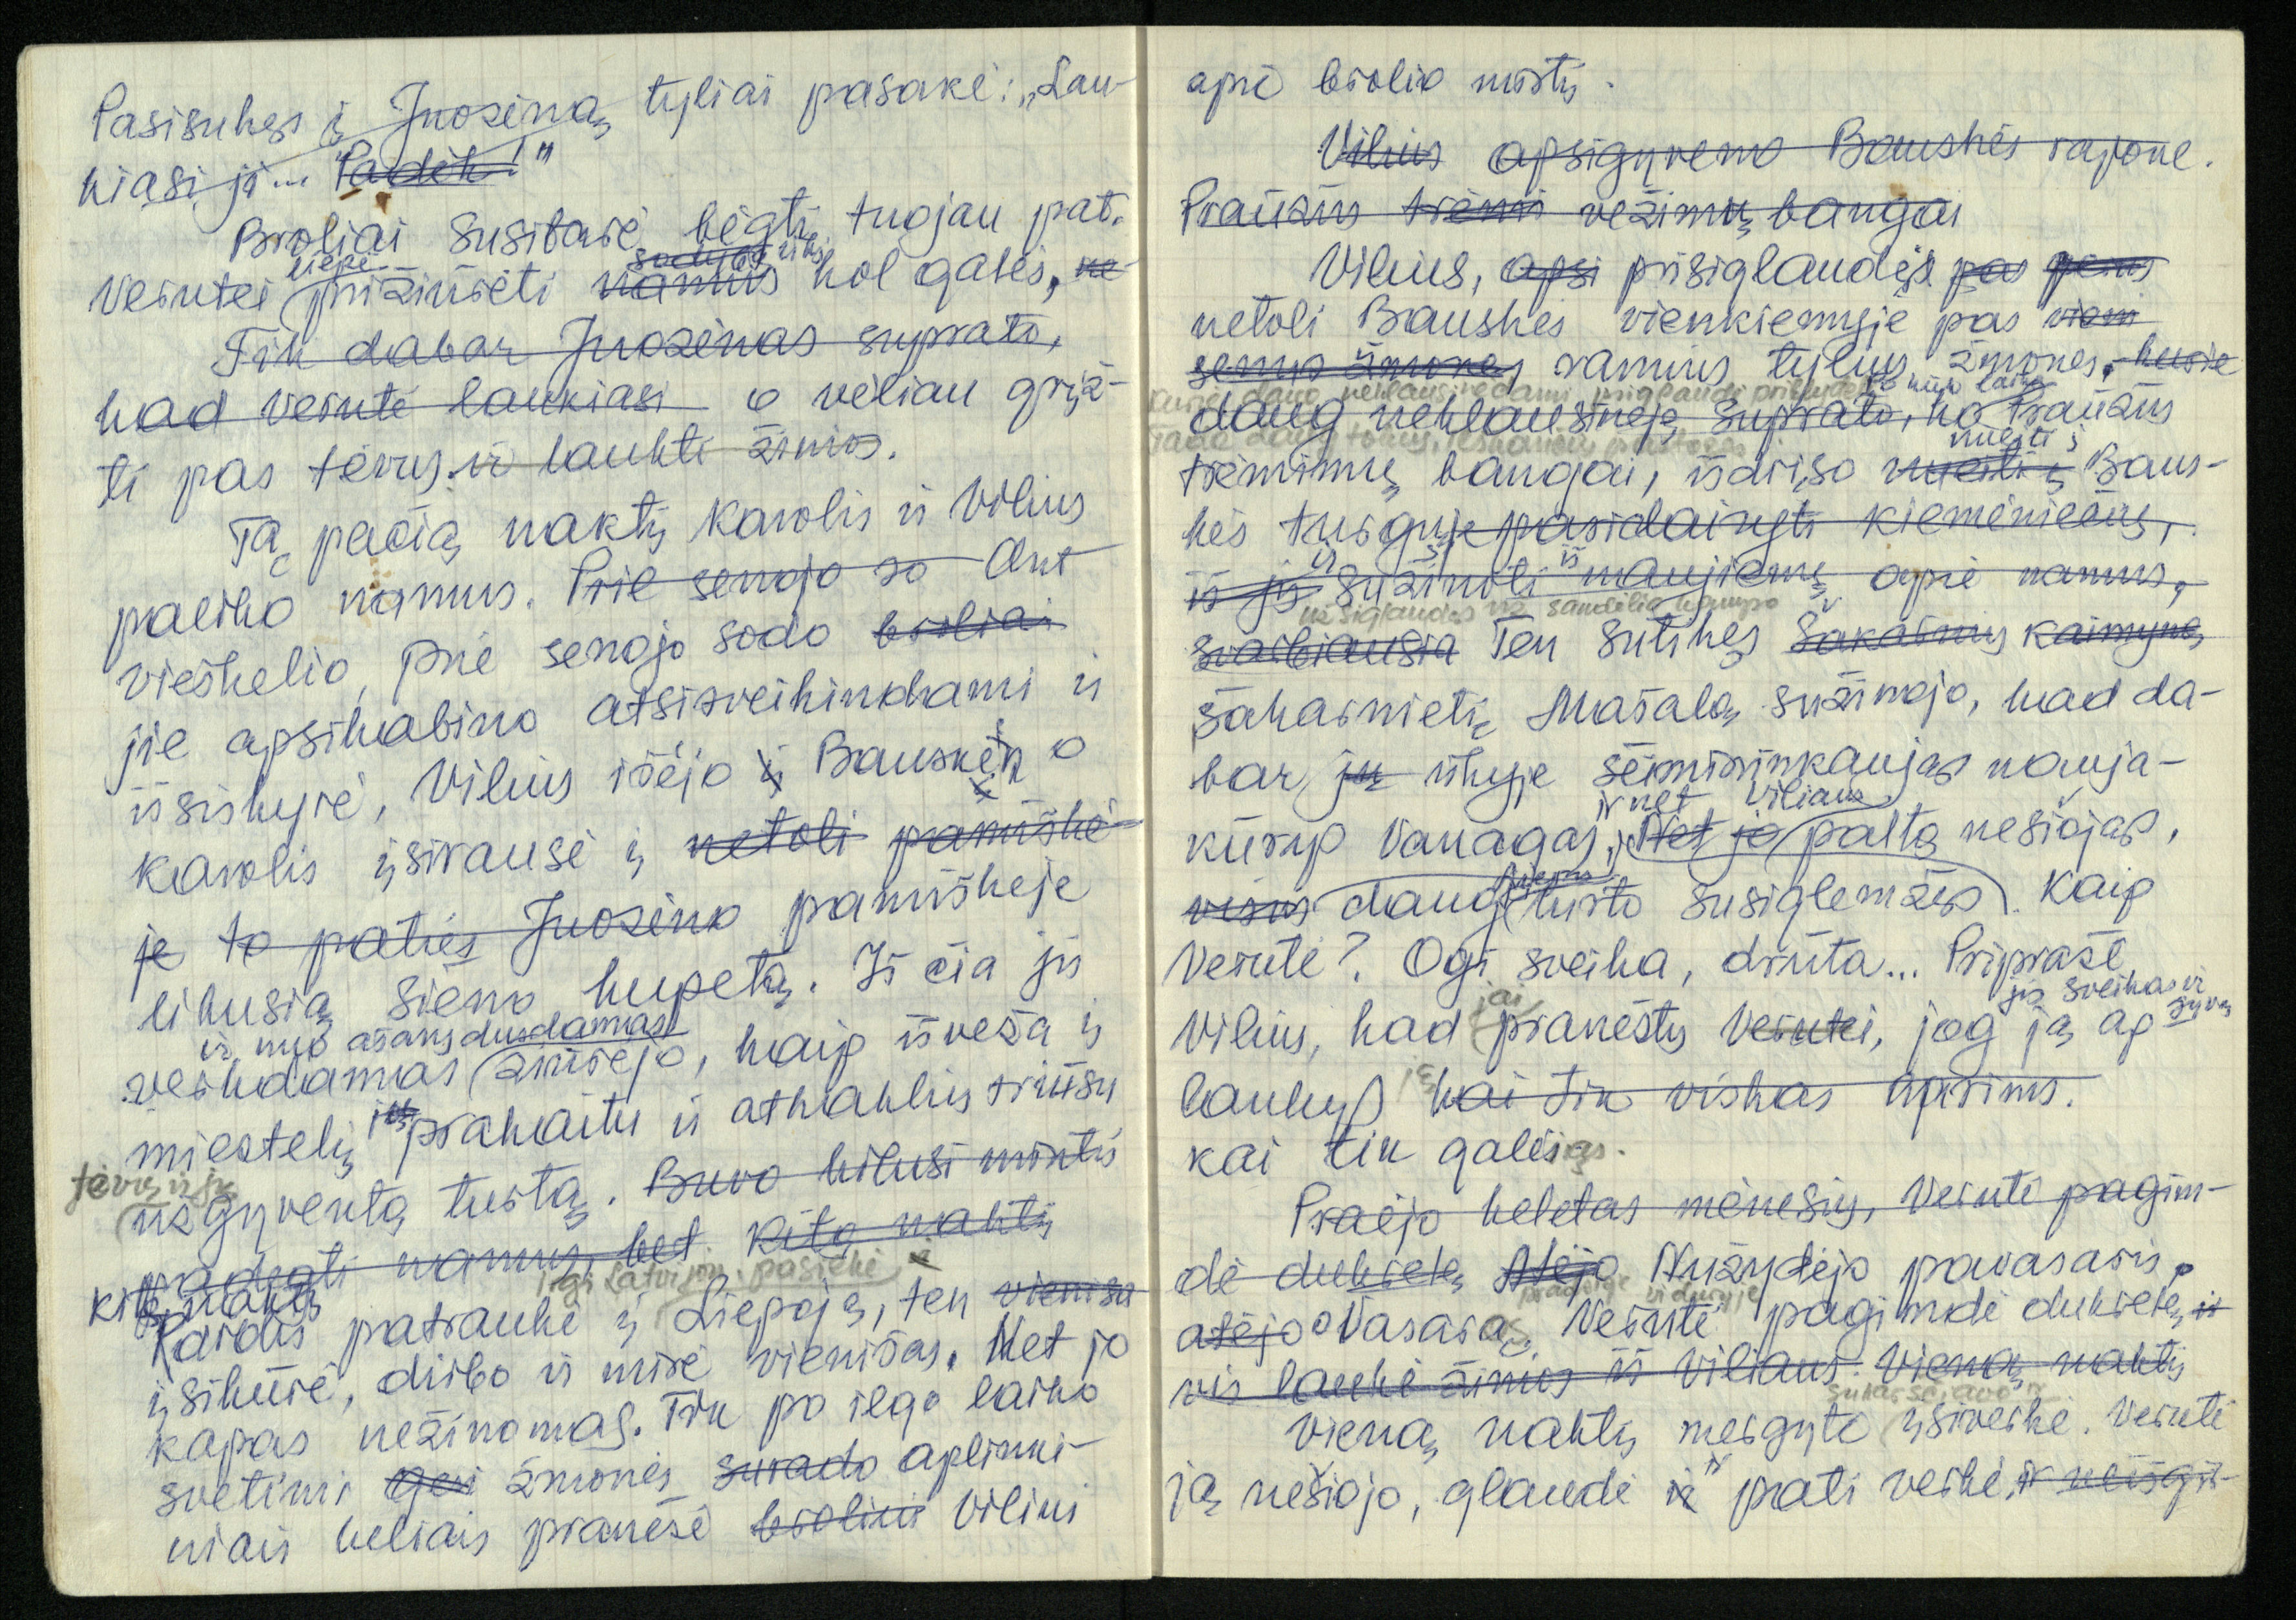 Pasisukęs į Juozėną tyliai pasakė: „Lau-
kiasi ji... Padėk!"
Broliai susitarė bėgti tuojau pat.
liepė sodybą
Verutei prižiūrėti namus kol galės, ne
Tik dabar Juozėnas suprato,
kad Verutė laukiasi o vėliau grįž-
ti pas tėvus ir laukti žinios.
Tą pačią naktį Karolis ir Vilius
paliko namus. Prie senojo so Ant
vieškelio, prie senojo sodo broliai
jie apsikabino atsisveikindami ir
išsiskyrė, Vilius išėjo į Bauskę o
Karolis įsirausė į netoli pamiškė-
je to paties Juozėno pamiškėje
likusią šieno kupetą. Iš čia jis
ir nuo ašarų dusdamas
verkdamas žiūrėjo, kaip išveža į
miestelį jų prakaitu ir atkakliu triūsu
tėvų ir jų
užgyventą turtą. Buvo kilusi mintis
padegti namus, bet kitą naktį
kitą naktį iki Latvijos, pasiekė
Karolis patraukė į Liepoją, ten vienišu
įsikūrė, dirbo ir mirė vienišas. Net jo
kapas nežinomas. Tik po ilgo laiko
svetimi geri žmonės surado aplinki-
niais keliais pranešė broliui Viliui
apie brolio mirtį.
Vilius apsigyveno Bauskės rajone.
Praūžus trėmi vežimų bangai
Vilius, apsi prisiglaudęs pas gerus
netoli Bauskės vienkiemyje pas vieni
senus žmones ramius tylius žmones, kurie
daug neklausinėję suprato, ko Praūžus
trėmimų bangai, išdrįso nueiti į Baus-
nueiti į
kės turguje pasidairyti kiemėniečių,
iš jų sužinoti iš naujienų apie namus,
svarbiausia Ten sutikęs Šakarnių kaimyną
šakarnietį Mašalą sužinojo, kad da-
bar jų ūkyje šeimininkaująs nauja-
ir net Viliaus
kurys Vanagas, Net jo paltą nešiojąs,
visus daug turto susiglemžęs. Kaip
Verutė? Ogi sveika, drūta... Priprašė
jai jis sveikas ir gyvas
Vilius, kad praneštų Verutei, jog ją ap
lankys kai tik viskas aprims.
kai tik galėsiąs.
Praėjo keletas mėnesių, Verutė pagim-
dė dukrelę Atėjo Nužydėjo pavasaris,
viduryje
atėjo o Vasara. Verutė pagimdė dukrelę, ir
vis laukė žinios iš Viliaus. Vieną naktį
Vieną naktį mergytė įsiverkė. Verutė
ją nešiojo, glaudė ir pati verkė, ir neišgir-